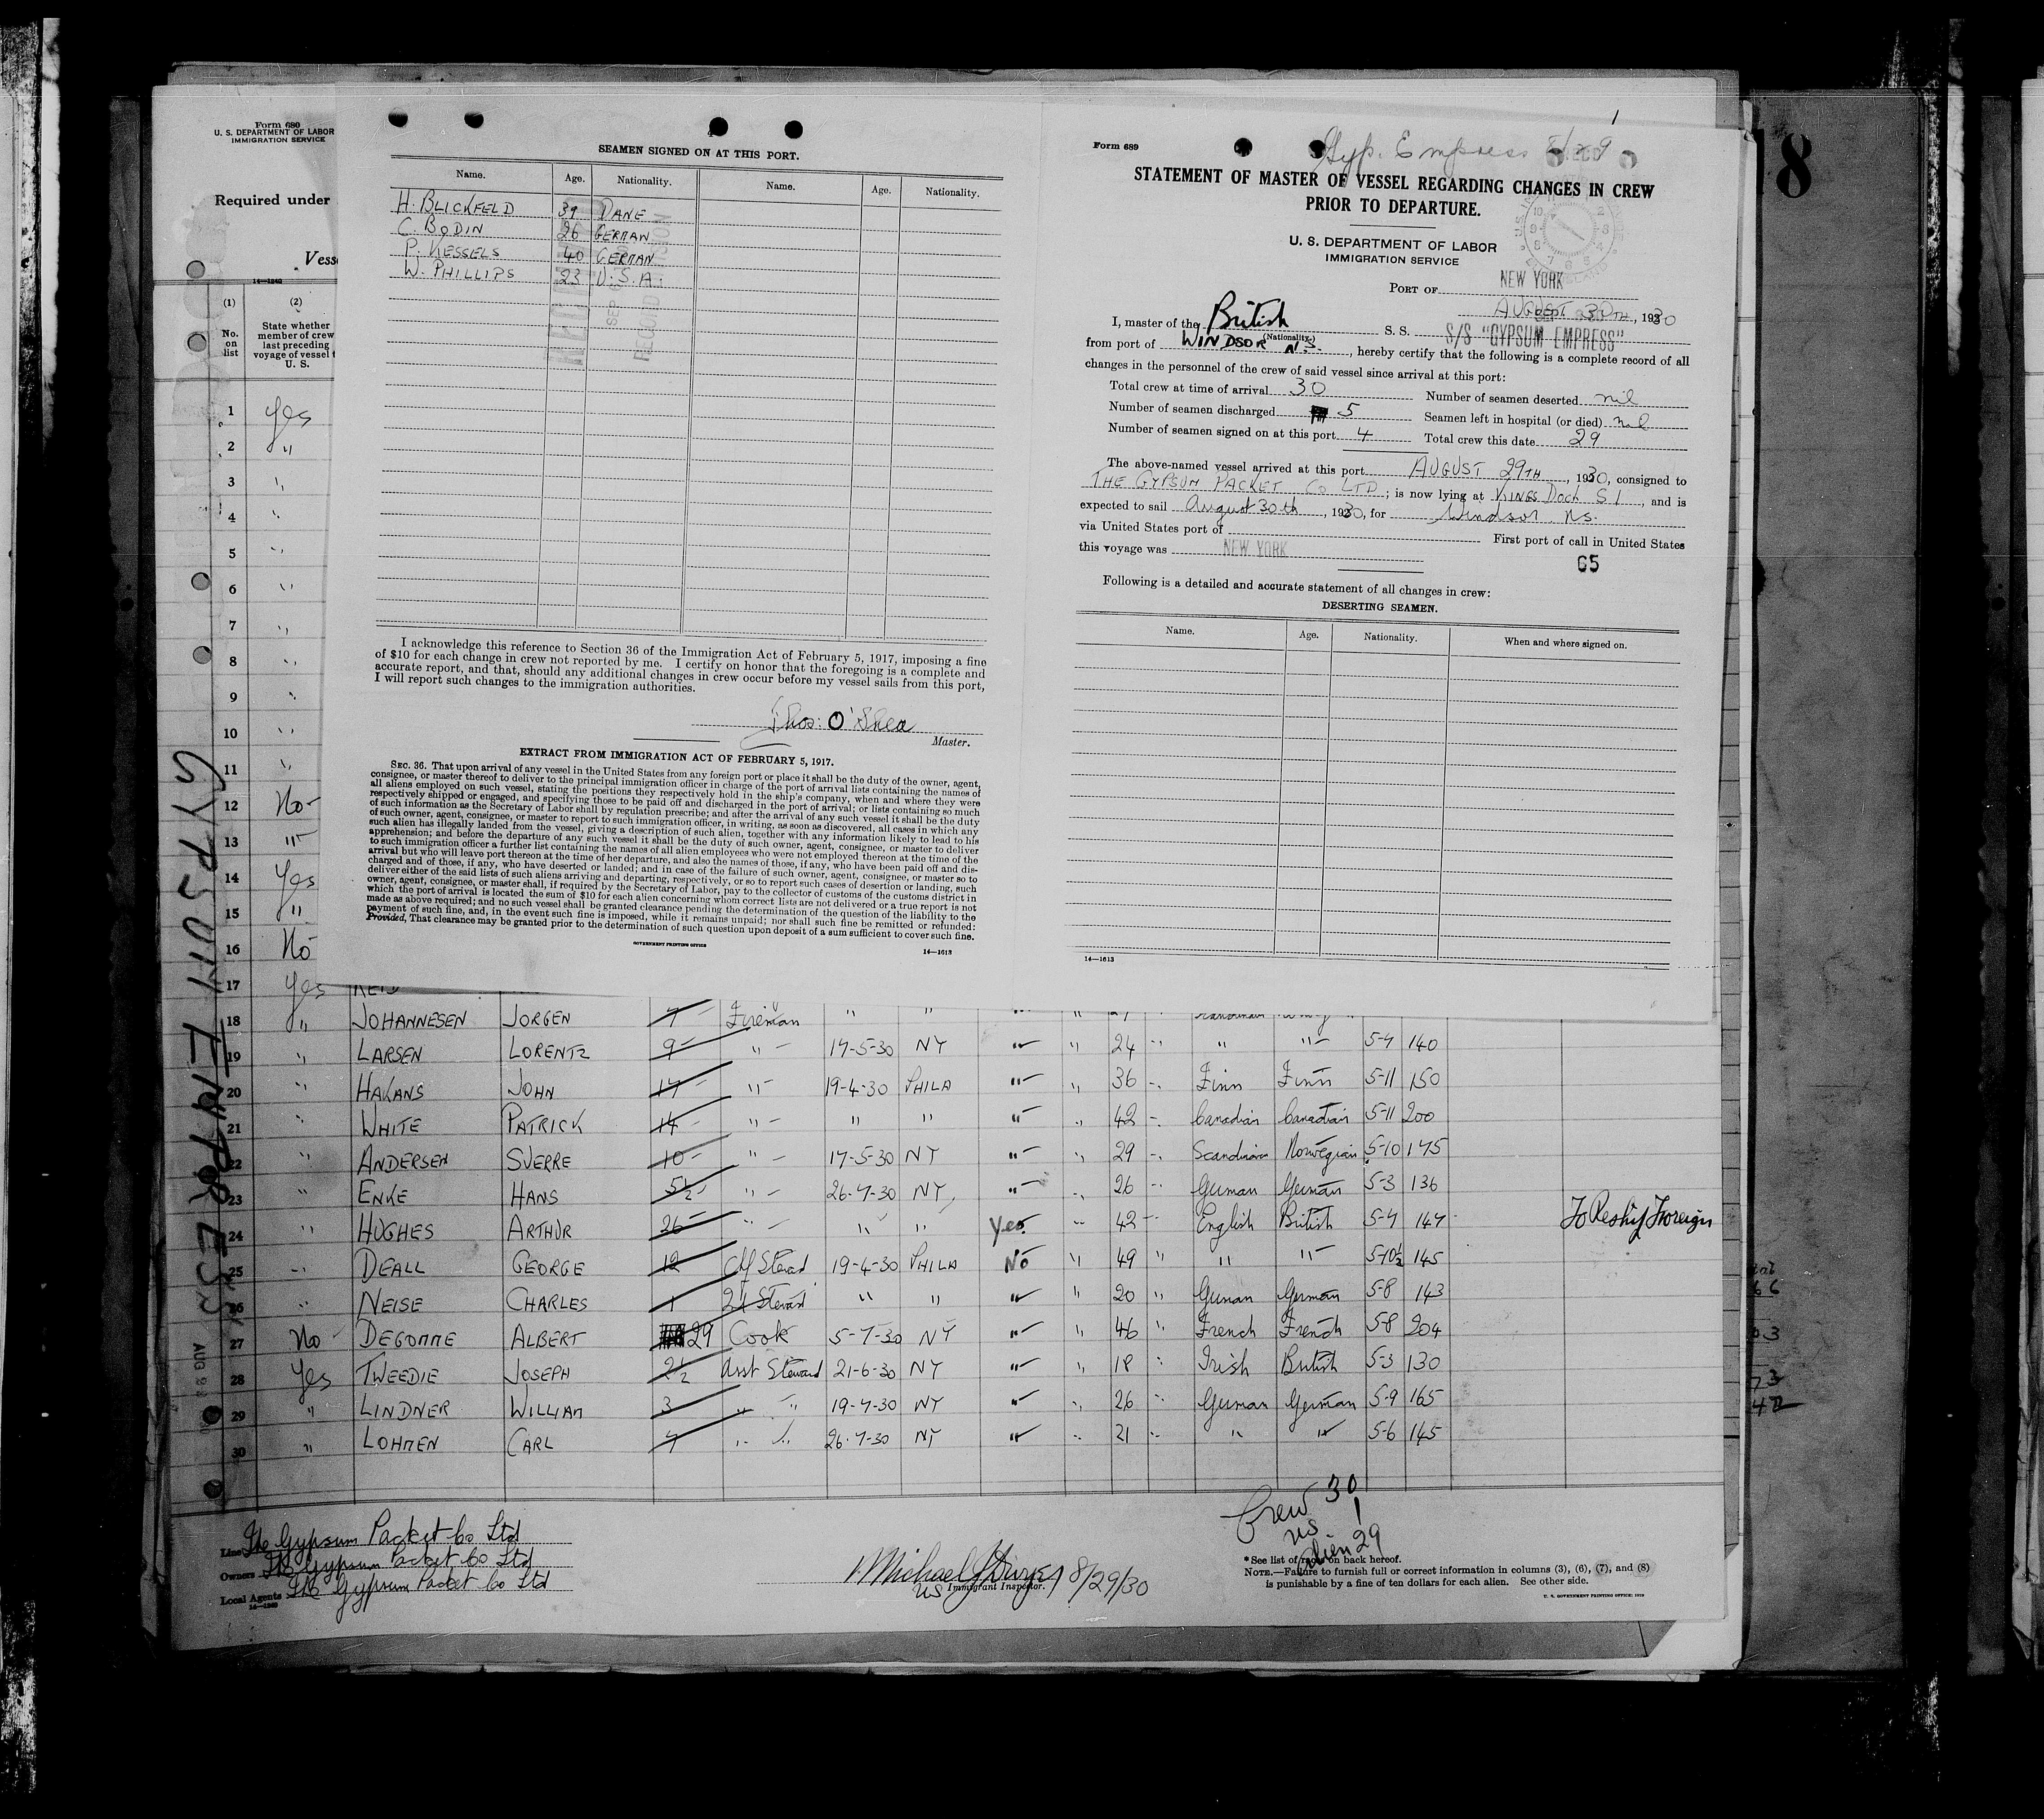 Form 680
U. S. DEPARTMENT OF LABOR
IMMIGRATION SERVICE
Required under
14—1240
(1) (2)
No. on list
State whether member of crew last preceding voyage of vessel U. S.
1 Yes
2 "
3 "
4 "
5 "
6 "
7 "
8 "
9 "
10 "
11 "
12 No
13 "
14 Yes
15 "
16 No
17 Yes
GYPSUM EMPRESS
SEAMEN SIGNED ON AT THIS PORT.
Name. Age. Nationality. Name. Age. Nationality.
H. BLICKFELD 39 DANE
C. BODIN 26 GERMAN
P. KESSELS 40 GERMAN
W. PHILLIPS 23 U.S.A.
I acknowledge this reference to Section 36 of the Immigration Act of February 5, 1917, imposing a fine
of $10 for each change in crew not reported by me. I certify on honor that the foregoing is a complete and
accurate report, and that, should any additional changes in crew occur before my vessel sails from this port,
I will report such changes to the immigration authorities.
Thos: O'Shea
Master.
EXTRACT FROM IMMIGRATION ACT OF FEBRUARY 5, 1917.
SEC. 36. That upon arrival of any vessel in the United States from any foreign port or place it shall be the duty of the owner, agent,
consignee, or master thereof to deliver to the principal immigration officer in charge of the port of arrival lists containing the names of
all aliens employed on such vessel, stating the positions they respectively hold in the ship's company, when and where they were
respectively shipped or engaged, and specifying those to be paid off and discharged in the port of arrival; or lists containing so much
of such information as the Secretary of Labor shall by regulation prescribe; and after the arrival of any such vessel it shall be the duty
of such owner, agent, consignee, or master to report to such immigration officer, in writing, as soon as discovered, all cases in which any
such alien has illegally landed from the vessel, giving a description of such alien, together with any information likely to lead to his
apprehension; and before the departure of any such vessel it shall be the duty of such owner, agent, consignee, or master to deliver
to such immigration officer a further list containing the names of all alien employees who were not employed thereon at the time of the
arrival but who will leave port thereon at the time of her departure, and also the names of those, if any, who have been paid off and dis-
charged and of those, if any, who have deserted or landed; and in case of the failure of such owner, agent, consignee, or master so to
deliver either of the said lists of such aliens arriving and departing, respectively, or so to report such cases of desertion or landing, such
owner, agent, consignee, or master shall, if required by the Secretary of Labor, pay to the collector of customs of the customs district in
which the port of arrival is located the sum of $10 for each alien concerning whom correct lists are not delivered or a true report is not
made as above required; and no such vessel shall be granted clearance pending the determination of the question of the liability to the
payment of such fine, and, in the event such fine is imposed, while it remains unpaid; nor shall such fine be remitted or refunded:
Provided, That clearance may be granted prior to the determination of such question upon deposit of a sum sufficient to cover such fine.
GOVERNMENT PRINTING OFFICE
14—1613
Form 689
Gyp. Empress 8/29
STATEMENT OF MASTER OF VESSEL REGARDING CHANGES IN CREW
PRIOR TO DEPARTURE.
U. S. DEPARTMENT OF LABOR
IMMIGRATION SERVICE
PORT OF NEW YORK
AUGUST 30TH, 1930
I, master of the British S. S. S/S "GYPSUM EMPRESS"
(Nationality.)
from port of WINDSOR N.S., hereby certify that the following is a complete record of all
changes in the personnel of the crew of said vessel since arrival at this port:
Total crew at time of arrival 30 Number of seamen deserted nil
Number of seamen discharged 5 Seamen left in hospital (or died) nil
Number of seamen signed on at this port 4 Total crew this date 29
The above-named vessel arrived at this port AUGUST 29TH, 1930, consigned to
THE GYPSUM PACKET CO LTD; is now lying at KINGS DOCK S I, and is
expected to sail August 30th, 1930, for Windsor. NS.
via United States port of First port of call in United States
this voyage was NEW YORK
65
Following is a detailed and accurate statement of all changes in crew:
DESERTING SEAMEN.
Name. Age. Nationality. When and where signed on.
14—1613
18
18 " JOHANNESEN JORGEN 7 Fireman " "
19 " LARSEN LORENTZ 9 " 17-5-30 NY " " 24 " " " 5-7 140
20 " HAKANS JOHN 17 " 19-4-30 PHILA " " 36 " Finn Finn 5-11 150
21 " WHITE PATRICK 14 " " " " " 42 " Canadian Canadian 5-11 200
22 " ANDERSEN SVERRE 10 " 17-5-30 NY " " 29 " Scandinavian Norwegian 5-10 175
23 " ENKE HANS 5½ " 26-7-30 NY " " 26 " German German 5-3 136
24 " HUGHES ARTHUR 26 " " " Yes " 42 " English British 5-7 147 To Reship Foreign
25 " DEALL GEORGE 12 Chf Steward 19-4-30 PHILA No " 49 " " " 5-10½ 145
26 " NEISE CHARLES 1 2d Steward " " " " 20 " German German 5-8 143
27 No DEGOMME ALBERT 29 Cook 5-7-30 NY " " 46 " French French 5-8 204
28 Yes TWEEDIE JOSEPH 2½ Asst Steward 21-6-30 NY " " 18 " Irish British 5-3 130
29 " LINDNER WILLIAM 3 " " 19-7-30 NY " " 26 " German German 5-9 165
30 " LOHMEN CARL 7 " " 26-7-30 NY " " 21 " " " 5-6 145
Crew 30
US 1
Alien 29
Line The Gypsum Packet Co Ltd
Owners The Gypsum Packet Co Ltd
Local Agents The Gypsum Packet Co Ltd
14—1240
Michael J Dwyer 8/29/30
US Immigrant Inspector.
* See list of races on back hereof.
NOTE.—Failure to furnish full or correct information in columns (3), (6), (7), and (8)
is punishable by a fine of ten dollars for each alien. See other side.
U. S. GOVERNMENT PRINTING OFFICE